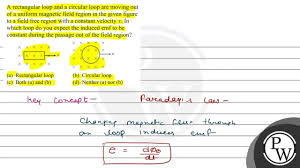 A rectangular loop and a circular loop are moving out
of a uniform magnetic field region in the given figure
to a field free region with a constant velocity v. In
which loop do you expect the induced emf to be
constant during the passage out of the field region?
(a) Rectangular loop (b) Circular loop
(c) Both (a) and (b) (d)
Key Concept - Faraday's Law -
Changing magnetic flux through
an loop induces emf
e = dφ/dt
PW